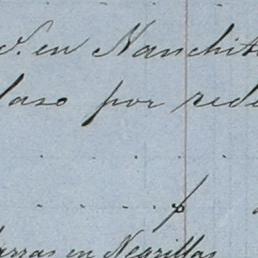 en Nanchit
laso por rede
p
arras en Negrillas